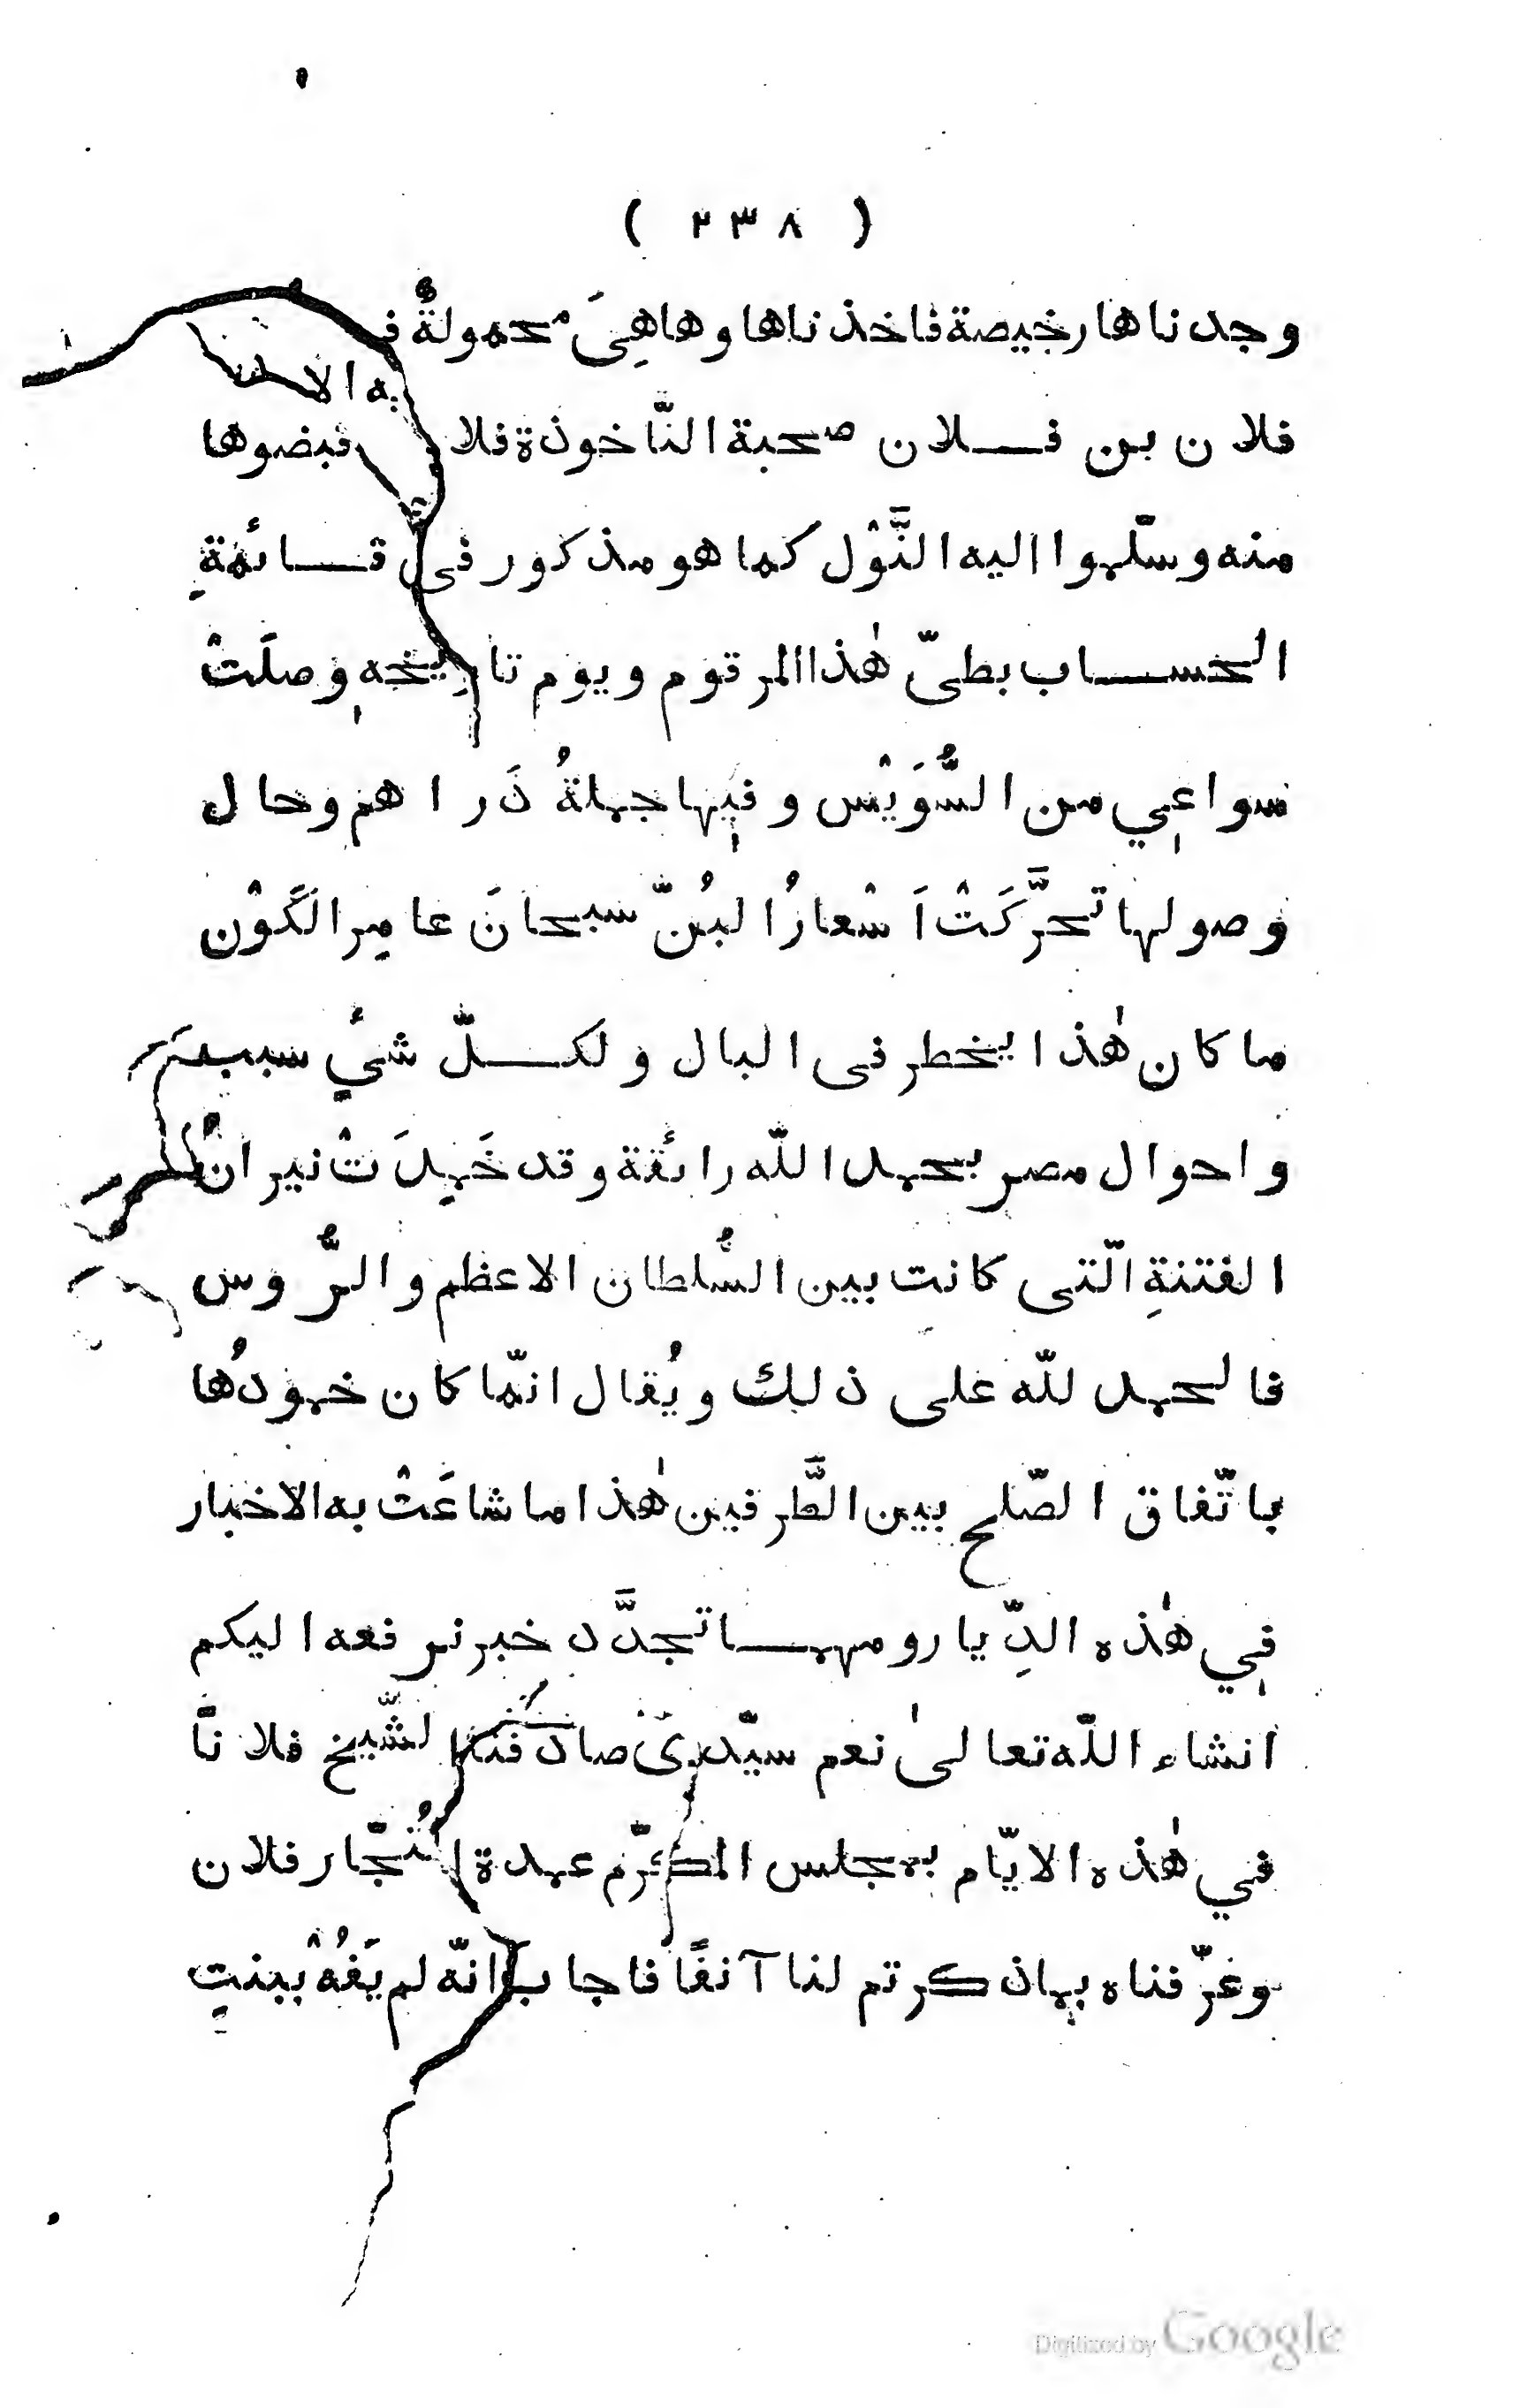 ( ٢٣٨ )
وجدناها رخيصة فاخذناها وها هِىَ محمولةٌ
فلان بن فلان صحبة النّاخوذة
منه وسلّموا اليه النَّوْل كما هو مذكور فى قائمةِ
الحساب بطىّ هٰذا المرقوم ويوم تاريخهٖ وصلَتْ
سواعي من السُّوَيْس وفيها جملةُ دَراهم وحال
وصولها تحرَّكَتْ اَسْعارُ البُنّ سبحانَ عامِر الكَوْن
ما كان هٰذا يخطر فى البال ولكلّ شئٍ سبب
واحوال مصر بحمد اللّه رائقة وقد خَمِدَتْ نيرانُ
الفتنةِ الّتى كانت بين السُّلطان الاعظم والرُّوس
فالحمد للّه على ذلك ويُقال انّما كان خمودُها
باتّفاق الصّلح بين الطَّرفين هٰذا ما شاعَتْ به الاخبار
في هٰذه الدِّيار ومهما تجدَّد خبر نرفعه اليكم
انشاء اللّه تعالىٰ نعم سيّدى صادفنا الشّيخ فلانًا
في هٰذه الايّام بمجلس المكرّم عمدة التُجّار فلان
وعرّفناه بما ذكرتم لنا آنفًا فاجاب انّه لم يَفُهْ ببنتِ
Digitized by Google